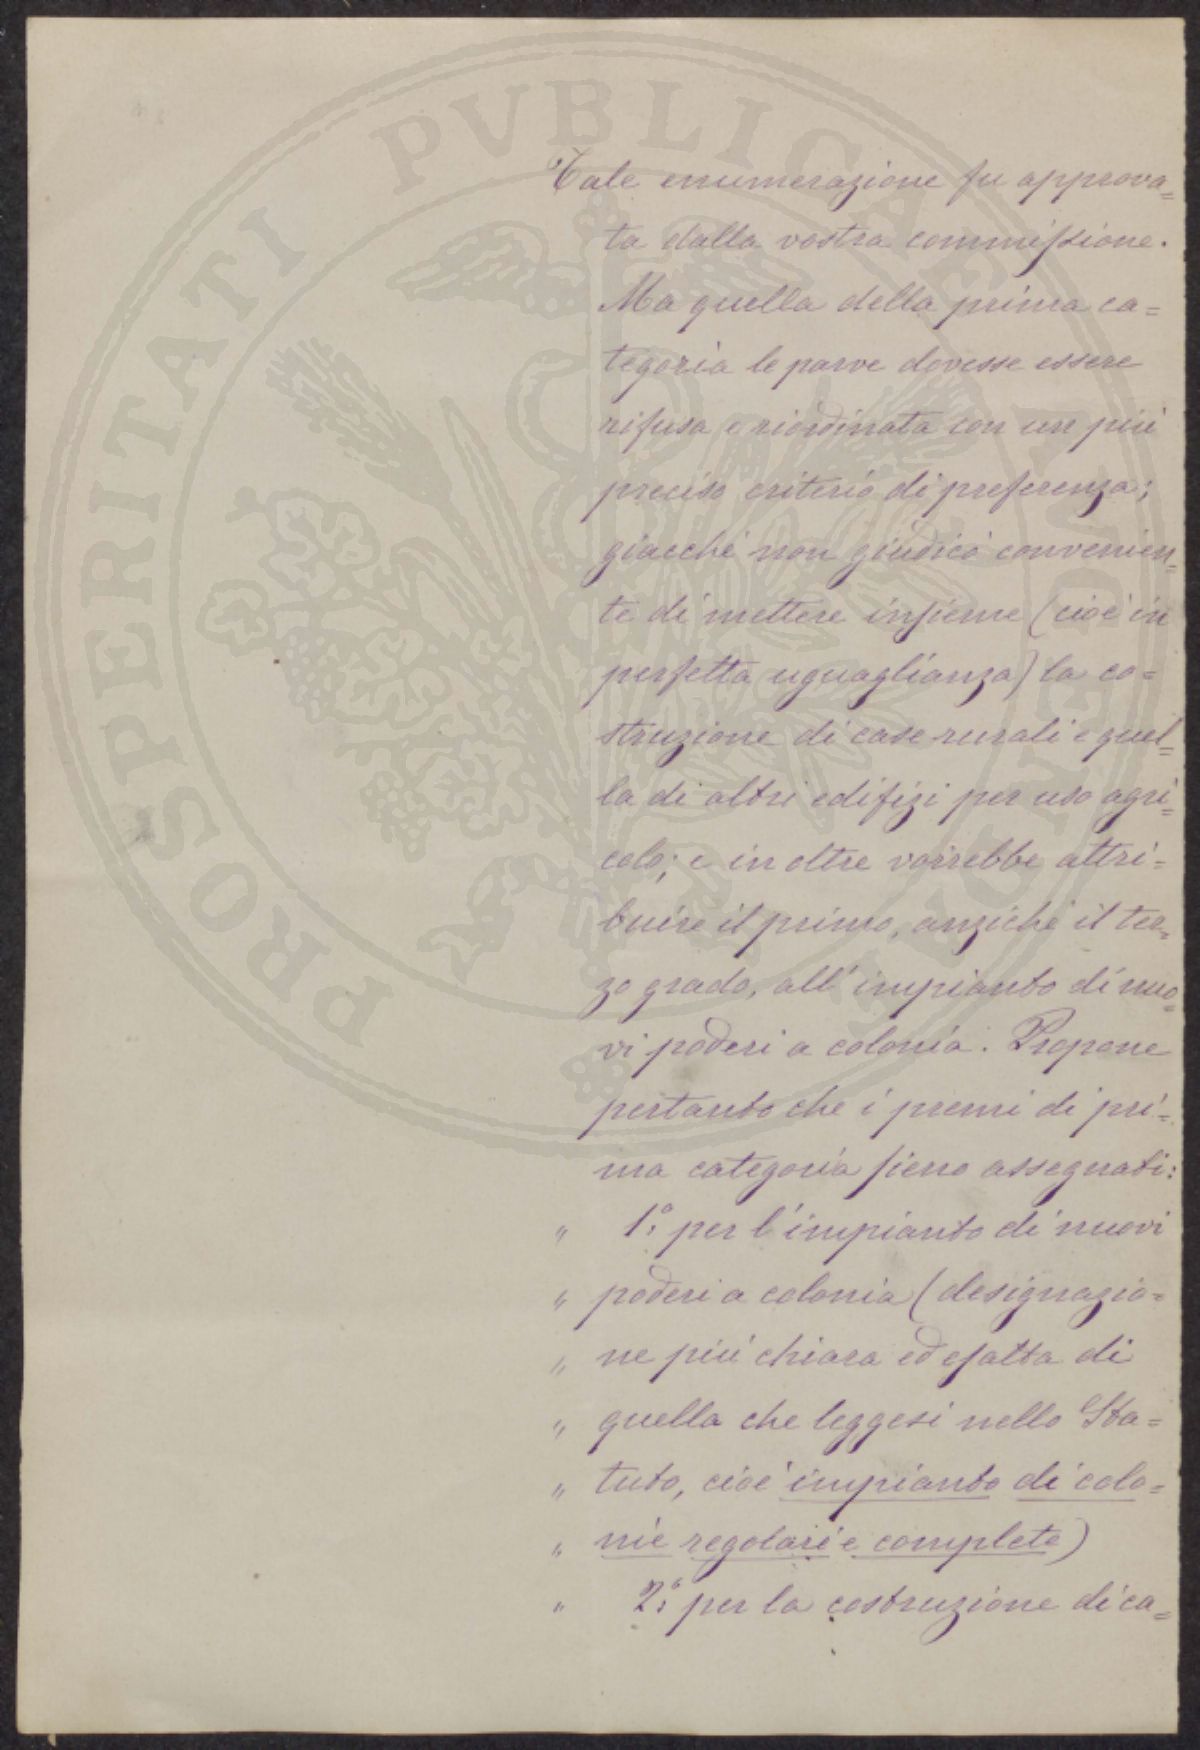 Tale enumerazione fu approva=
ta dalla vostra commissione.
Ma quella della prima ca=
tegoria le parve dovesse essere
rifusa e riordinata con un più
preciso criterio di preferenza;
giacché non giudicò convenien=
te di mettere insieme (cioè in
perfetta uguaglianza) la co=
struzione di case rurali e quel=
la di altri edifizi per uso agri=
colo; e in oltre vorrebbe attri=
buire il primo, anziché il ter=
zo grado, all'impianto di nuo=
vi poderi a colonia. Propone
pertanto che i premi di pri=
ma categoria sieno assegnati:
" 1.° per l'impianto di nuovi
" poderi a colonia (designazio=
" ne più chiara ed esatta di
" quella che leggesi nello Sta=
" tuto, cioè impianto di colo=
" nie regolari e complete)
" 2.° per la costruzione di ca=
PROSPERITATI PVBLICAE AVGENDAE